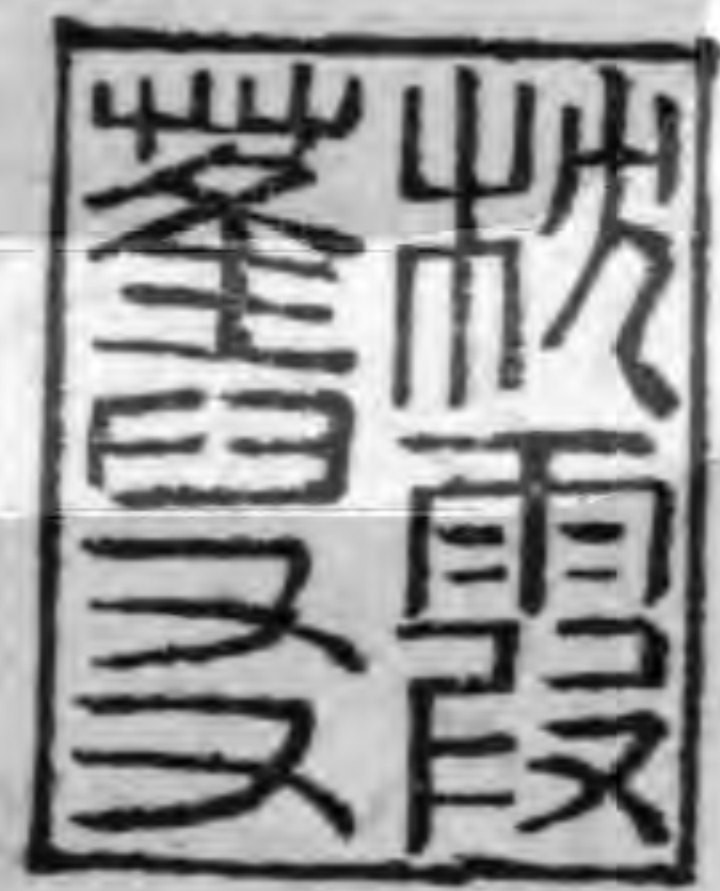 枕霞
舊友